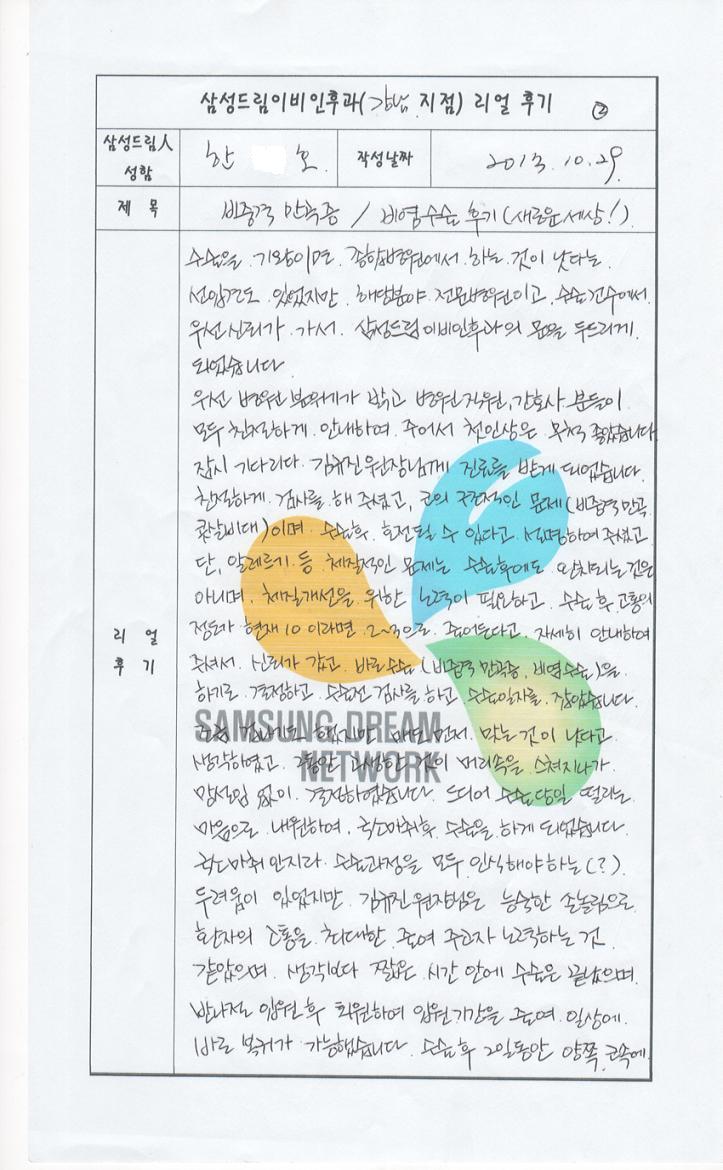 삼성드림이비인후과(강남 지점) 리얼 후기 ②
삼성드림人 성함 한 호 작성날짜 2013.10.29.
제 목 비중격 만곡증 / 비염수술 후기(새로운세상!)
수술을 기왕이면 종합병원에서 하는 것이 낫다는
선입견도 있었지만, 해당분야 전문병원이고, 수술건수에서
우선신뢰가 가서 삼성드림이비인후과의 문을 두드리게
되었습니다
우선 병원 분위기가 밝고 병원직원, 간호사 분들이
모두 친절하게 안내하여 주어서 첫인상은 무척 좋았습니다
잠시 기다리다 김유진원장님께 진료를 받게 되었습니다.
친절하게 검사를 해 주셨고, 코의 구조적인 문제(비중격만곡,
콧살비대)이며 수술후 호전될 수 있다고 설명하여주셨고
단, 알레르기 등 체질적인 문제는 수술후에도 완치되는것은
아니며, 체질개선을 위한 노력이 필요하고 수술후 고통의
정도가 현재10이라면 2~3으로 줄어든다고 자세히 안내하여
주셔서 신뢰가 갔고 바로수술(비중격만곡증, 비염수술)을
하기로 결정하고 수술전 검사를 하고 수술일자를 잡았습니다.
했지만 매도 먼저 맞는 것이 낫다고
생각하였고 그동안 고생한 것이 머리속을 스쳐지나가
망설임 없이 결정하였습니다. 드디어 수술당일 떨리는
마음으로 내원하여, 국소마취후 수술을 하게 되었습니다.
국소마취인지라 수술과정을 모두 인식해야하는(?)
두려움이 있었지만 김유진원장님은 능숙한 손놀림으로
환자의 고통을 최대한 줄여 주고자 노력하는 것
같았으며, 생각보다 짧은 시간 안에 수술은 끝났으며
반나절 입원후 퇴원하여 입원기간을 줄여 일상에
바로 복귀가 가능했습니다. 수술후 2일동안 양쪽 코속에
리 얼
후 기
SAMSUNG DREAM
NETWORK